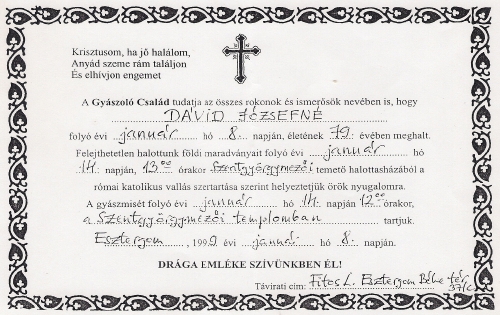 Krisztusom, ha jő halálom,
Anyád szeme rám találjon
És elhívjon engemet
A Gyászoló Család tudatja az összes rokonok és ismerősök nevében is, hogy
DÁVID JÓZSEFNÉ
folyó évi január hó 8. napján, életének 79. évében meghalt.
Felejthetetlen halottunk földi maradványait folyó évi január hó
14. napján, 13⁰⁰ órakor Szentgyörgymezői temető halottasházából a
római katolikus vallás szertartása szerint helyeztetjük örök nyugalomra.
A gyászmisét folyó évi január hó 14. napján 12⁰⁰ órakor,
a Szentgyörgymezői templomban tartjuk.
Esztergom, 1999 évi január hó 8. napján.
DRÁGA EMLÉKE SZÍVÜNKBEN ÉL!
Távirati cím: Fitos L. Esztergom Béke tér
37/C